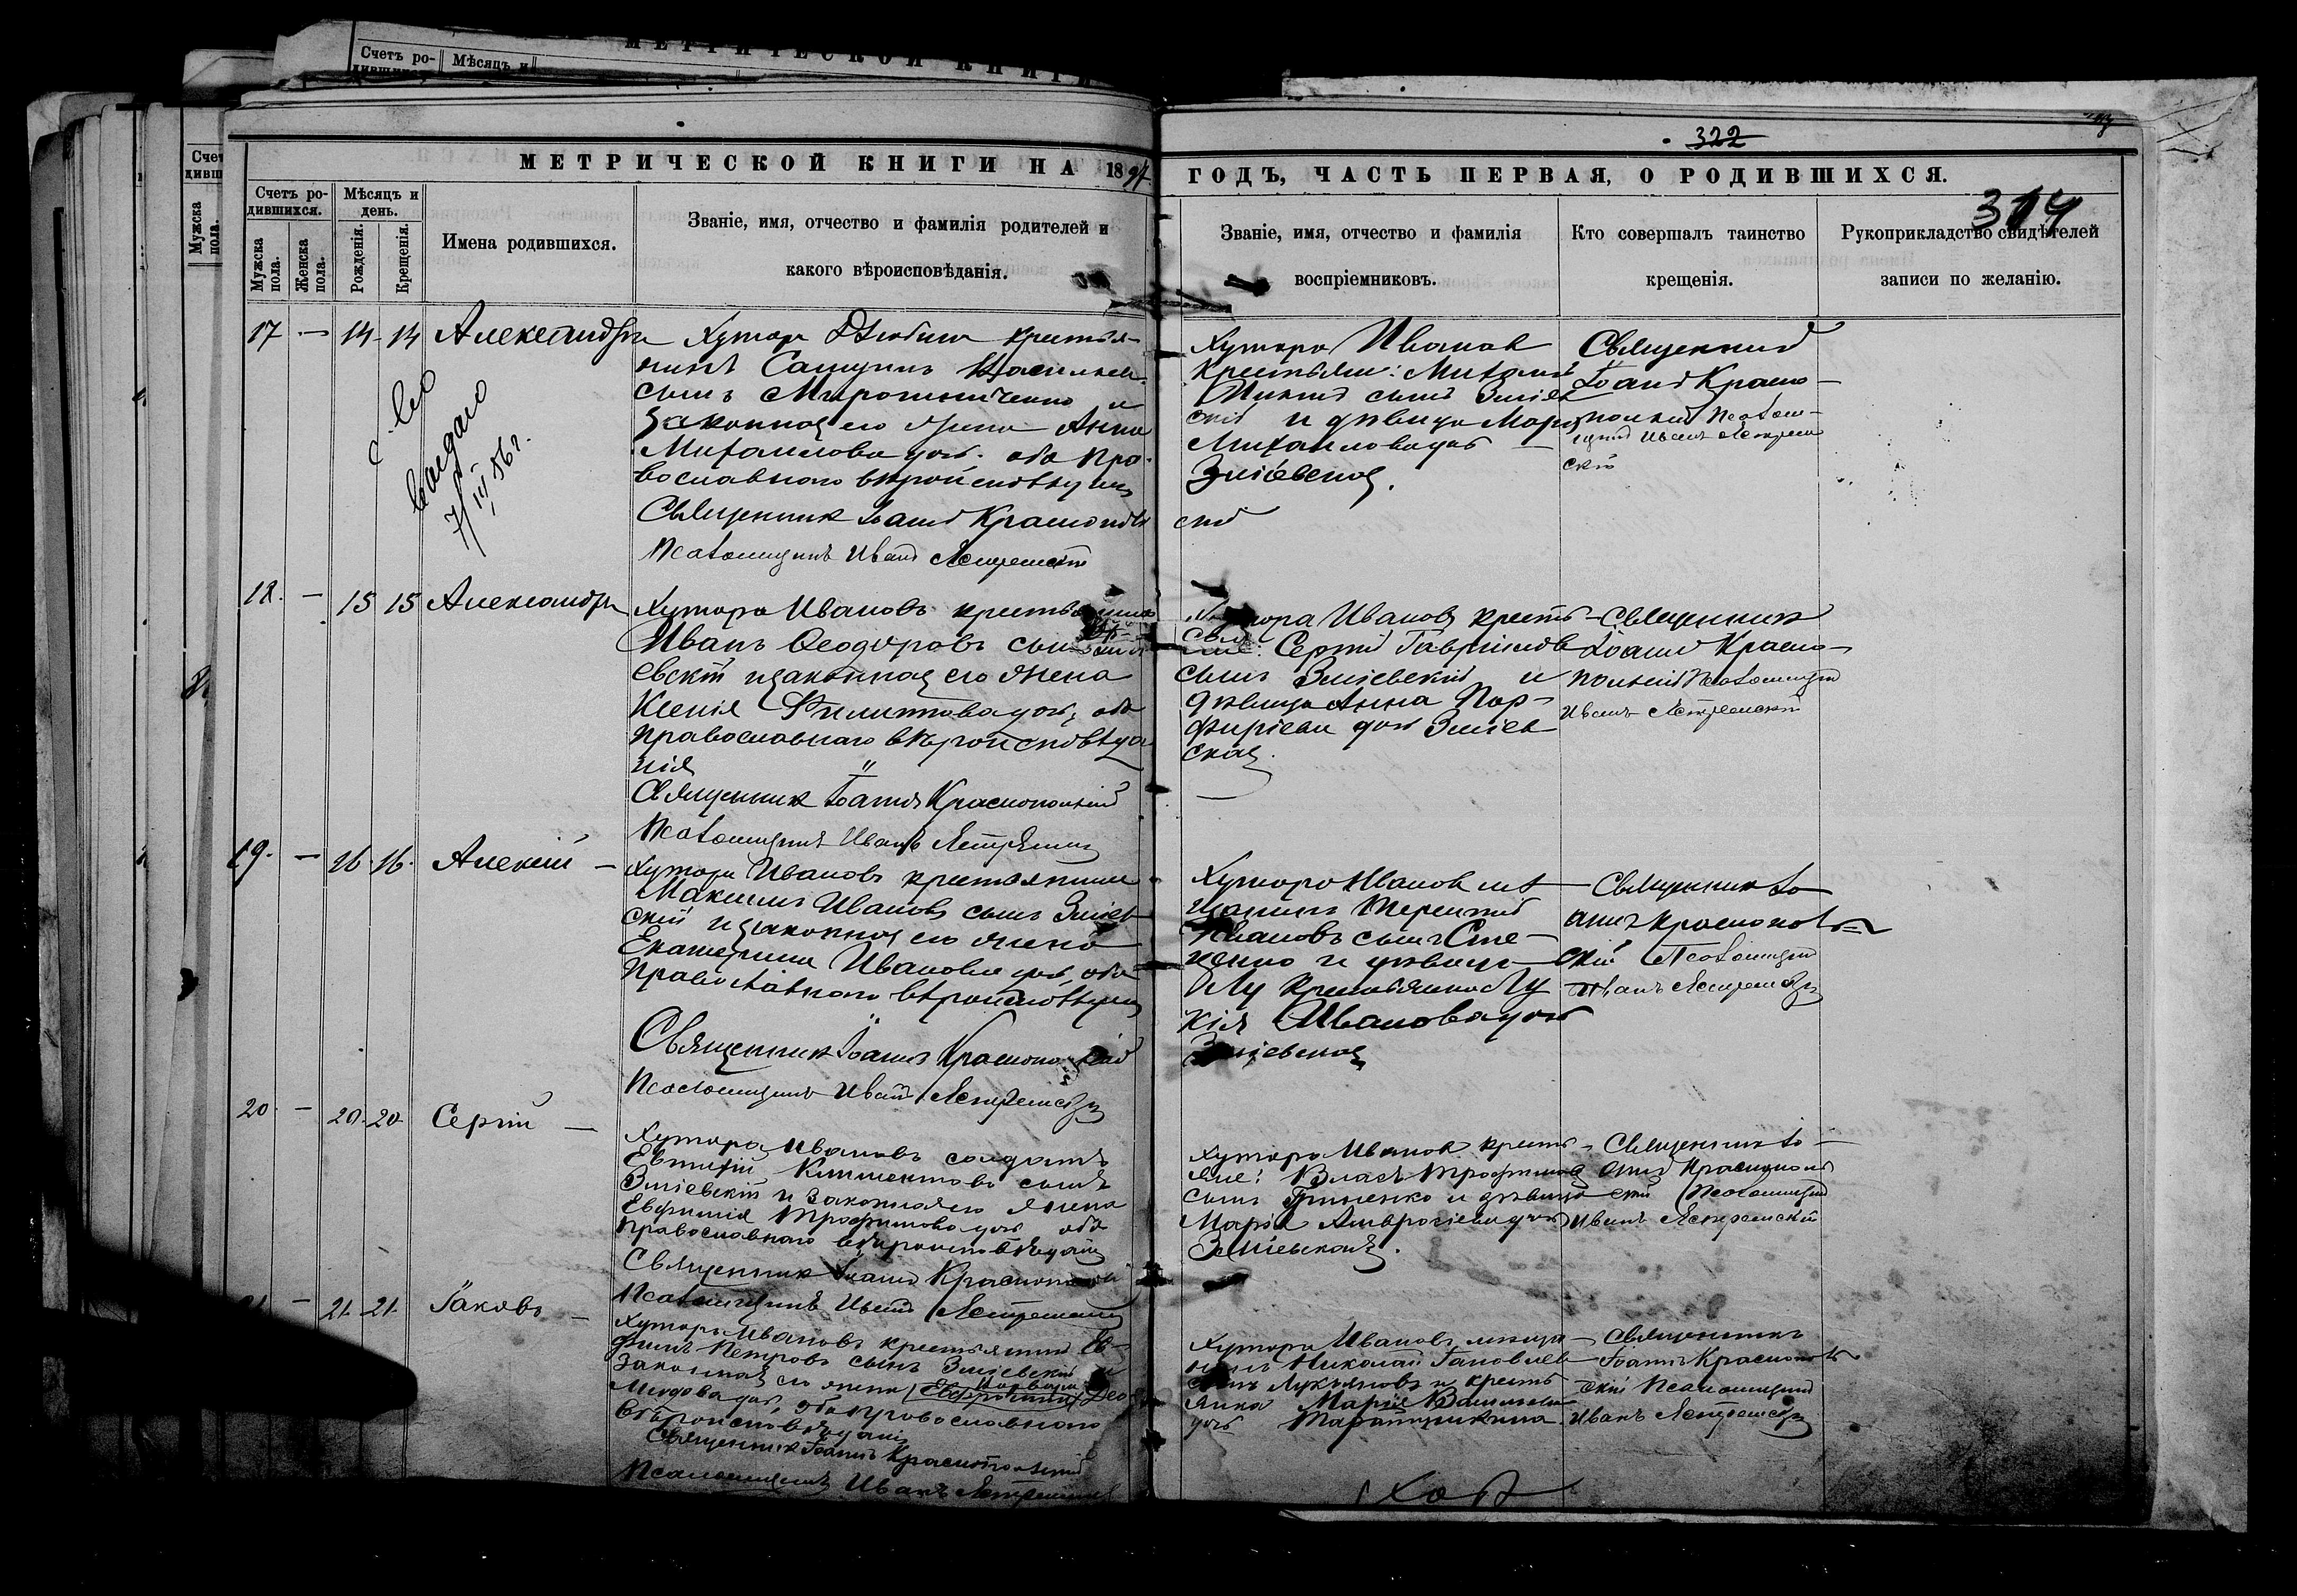 Счетъ ро-
дившихся.
Мѣсяцъ и
МЕТРИЧЕСКОЙ КНИГИ
Счет
дивш
Мужска
пола.
322
314
МЕТРИЧЕСКОЙ КНИГИ НА 1894
ГОДЪ, ЧАСТЬ ПЕРВАЯ, О РОДИВШИХСЯ.
Счетъ ро-
дившихся.
Мужска
пола.
Женска
пола.
Мѣсяцъ и
день.
Рожденія.
Крещенія.
Имена родившихся.
Званіе, имя, отчество и фамилія родителей и
какого вѣроисповѣданія.
Званіе, имя, отчество и фамилія
воспріемниковъ.
Кто совершалъ таинство
крещенія.
Рукоприкладство свидѣтелей
записи по желанію.
17 — 14 14 Александръ
Хутора крестья-
нинъ
сынъ Мирошниченко и
законная его жена Анна
Михаилова доч. оба пра-
вославнаго вѣроисповѣданія
Священникъ Іоаннъ Краснополь
Псаломщикъ Иванъ Ястремскій
с. в-во
выдано
7/III 56 г.
Хутора Иванов
крестьяни: Михаилъ
сынъ Зміев
скій и дѣвица Марія
Михаилова доч
Зміевская.
скій
Священникъ
Іоаннъ Красно-
польскій Псалом-
щикъ Иванъ Ястрем
скій
18. — 15 15 Александръ
Хутора Ивановъ крестьянинъ
Иванъ Ѳеодоровъ сынъ Змі-
евскій и законная его жена
Ксенія Филиппова доч, оба
православнаго вѣроисповѣда
нія
Священникъ Іоаннъ Краснопольскій
Псаломщикъ Иванъ Ястремскій
Хутора Иванов кресть-
яне: Сергій Гавріиловъ
сынъ Зміевскій и
дѣвица Анна Пор-
фиріева доч Зміев
ская.
Священникъ
Іоаннъ Красно-
польскій Псаломщикъ
Иванъ Ястремскій
19. — 16 16. Алексій —
Хутора Ивановъ крестьянинъ
Максимъ Ивановъ сынъ Зміев
скій и законная его жена
Екатерина Иванова доч, оба
православнаго вѣроисповѣданія
Священникъ Іоаннъ Краснопольскій
Псаломщикъ Иванъ Ястремскій
Хутора Иванов мѣ-
щанинъ Терентій
Ивановъ сынъ Сте-
ценко и дѣвица
крестьянка Лу
кія Иванова доч
Зміевская
Священникъ Іо-
аннъ Краснополь=
скій Псаломщикъ
Иванъ Ястремскій
20. — 20. 20. Сергій —
Хутора Ивановъ солдатъ
Евтихій Климентовъ сынъ
Зміевскій и законная его жена
Евфимія Трофимова доч оба
православнаго вѣроисповѣданія
Священникъ Іоаннъ Краснопольскій
Псаломщикъ Иванъ Ястремскій
Хутора Иванов кресть-
яне: Власъ Трофимов
сынъ Гриненко и дѣвица
Марія Амвросіева доч
Зміевская.
Священникъ Іо-
аннъ Краснополь
скій Псаломщикъ
Иванъ Ястремскій
21 — 21. 21. Іаковъ —
Хутора Ивановъ крестьянинъ Е-
фимъ Петровъ сынъ Зміевскій и
законная его жена
доч, оба православнаго
вѣроисповѣданія
Священникъ Іоаннъ Краснопольскій
Псаломщикъ Иванъ Ястремскій
Хутора Ивановъ мѣща-
нинъ Николай
сынъ Лукьяновъ и кресть
янка Марія Васильева
доч
Священникъ
Іоаннъ Краснополь
скій Псаломщикъ
Иванъ Ястремскій